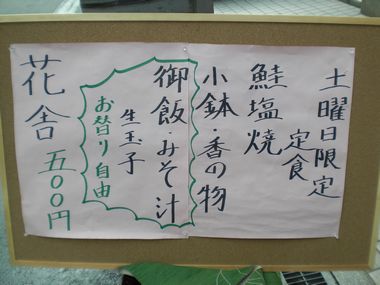 土曜日限定
定食
鮭塩焼
小鉢・香の物
御飯・みそ汁
生玉子
お替り自由
花舎 五〇〇円